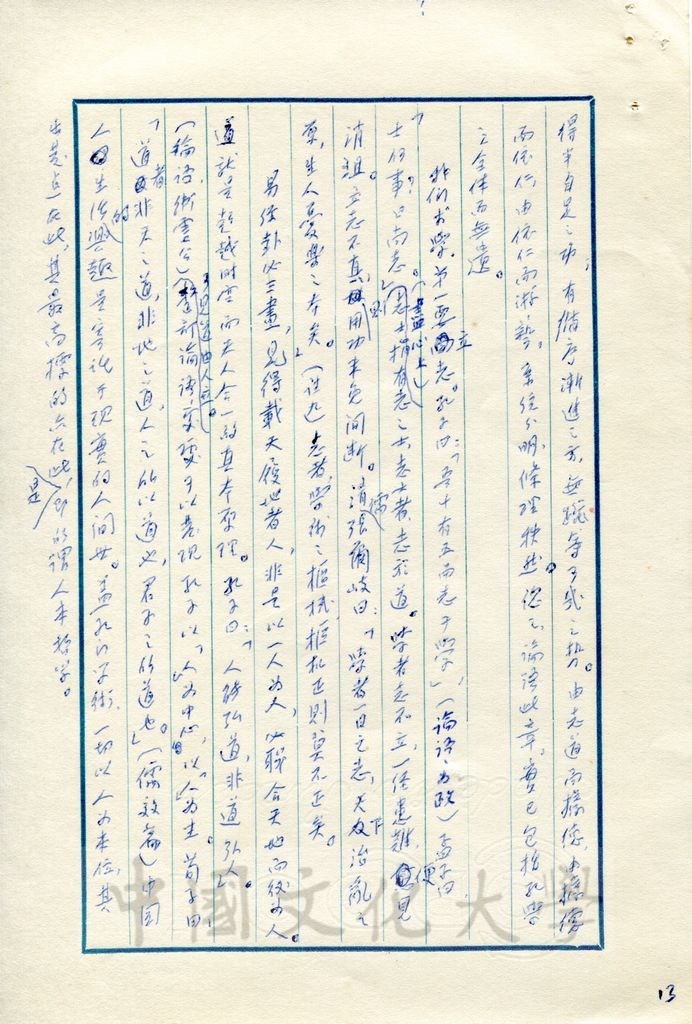 得半自足之功，有循序漸進之方，無躐等了我之勢。由志道而據德，由據德
而依仁，由依仁而游藝。系統分明，條理秩然。總之，論語此章，實已包括孔學
之全体而無遺。
我們求學，第一要立志。孔子曰：「吾十有五而志于學」（論語為政）孟子曰
「士何事？曰尚志」（盡心上）志士指有志之士，志士者，志於道。學者志不立，一經患難，便見
消沮。立志不真，因用功未免間斷。清儒張爾岐曰：「學者一日之志，天下治亂之
原，生人憂樂之本矣。」志者，學術之樞機，樞機正則莫不正矣。
易經卦必三畫，見得戴天履地者人，非是以一人為人，必聯合天地而後為人。
道就是超越時空而天人合一的真本原理。孔子曰：「人能弘道，非道弘人」
（論語衛靈公）可見道由人立。整部論語宗要可以表現孔子以「人為中心」，以「人」為主。荀子曰：
「道者非天之道，非地之道，人之所以道也，君子之所道也」（儒效篇）中國
人的生活興趣是寄託于現實的人間世。孟孔的學術，一切以人為本位，其
出發点在此，其最高標的亦在此，即是所謂人本哲學。
中國文化大學
13